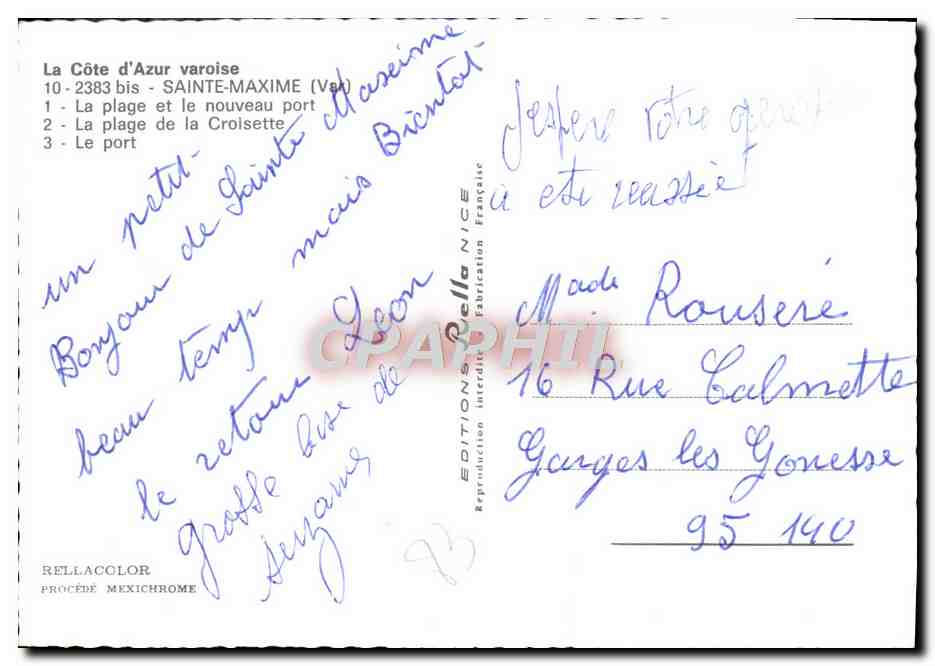 La Côte d'Azur varoise
10 - 2383 bis - SAINTE-MAXIME (Var)
1 - La plage et le nouveau port
2 - La plage de la Croisette
3 - Le port
un petit
Bonjour de Sainte Maxeime
beau temp mais Bientot
le retour Leon
grosse bise de
Suzanne
J'espere votre
a ete reussie
Made Rouseré
16 Rue Calmette
Garges les Gonesse
95 140
EDITIONS Rella NICE
Reproduction interdite Fabrication Française
CPAPHIL
RELLACOLOR
PROCÉDÉ MEXICHROME
93